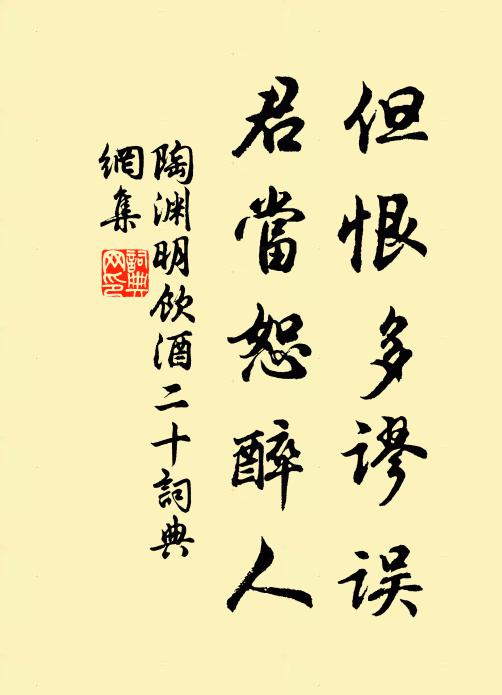 但恨多谬误
君當恕醉人
陶渊明飲酒二十詞典
網集
詞典
网印